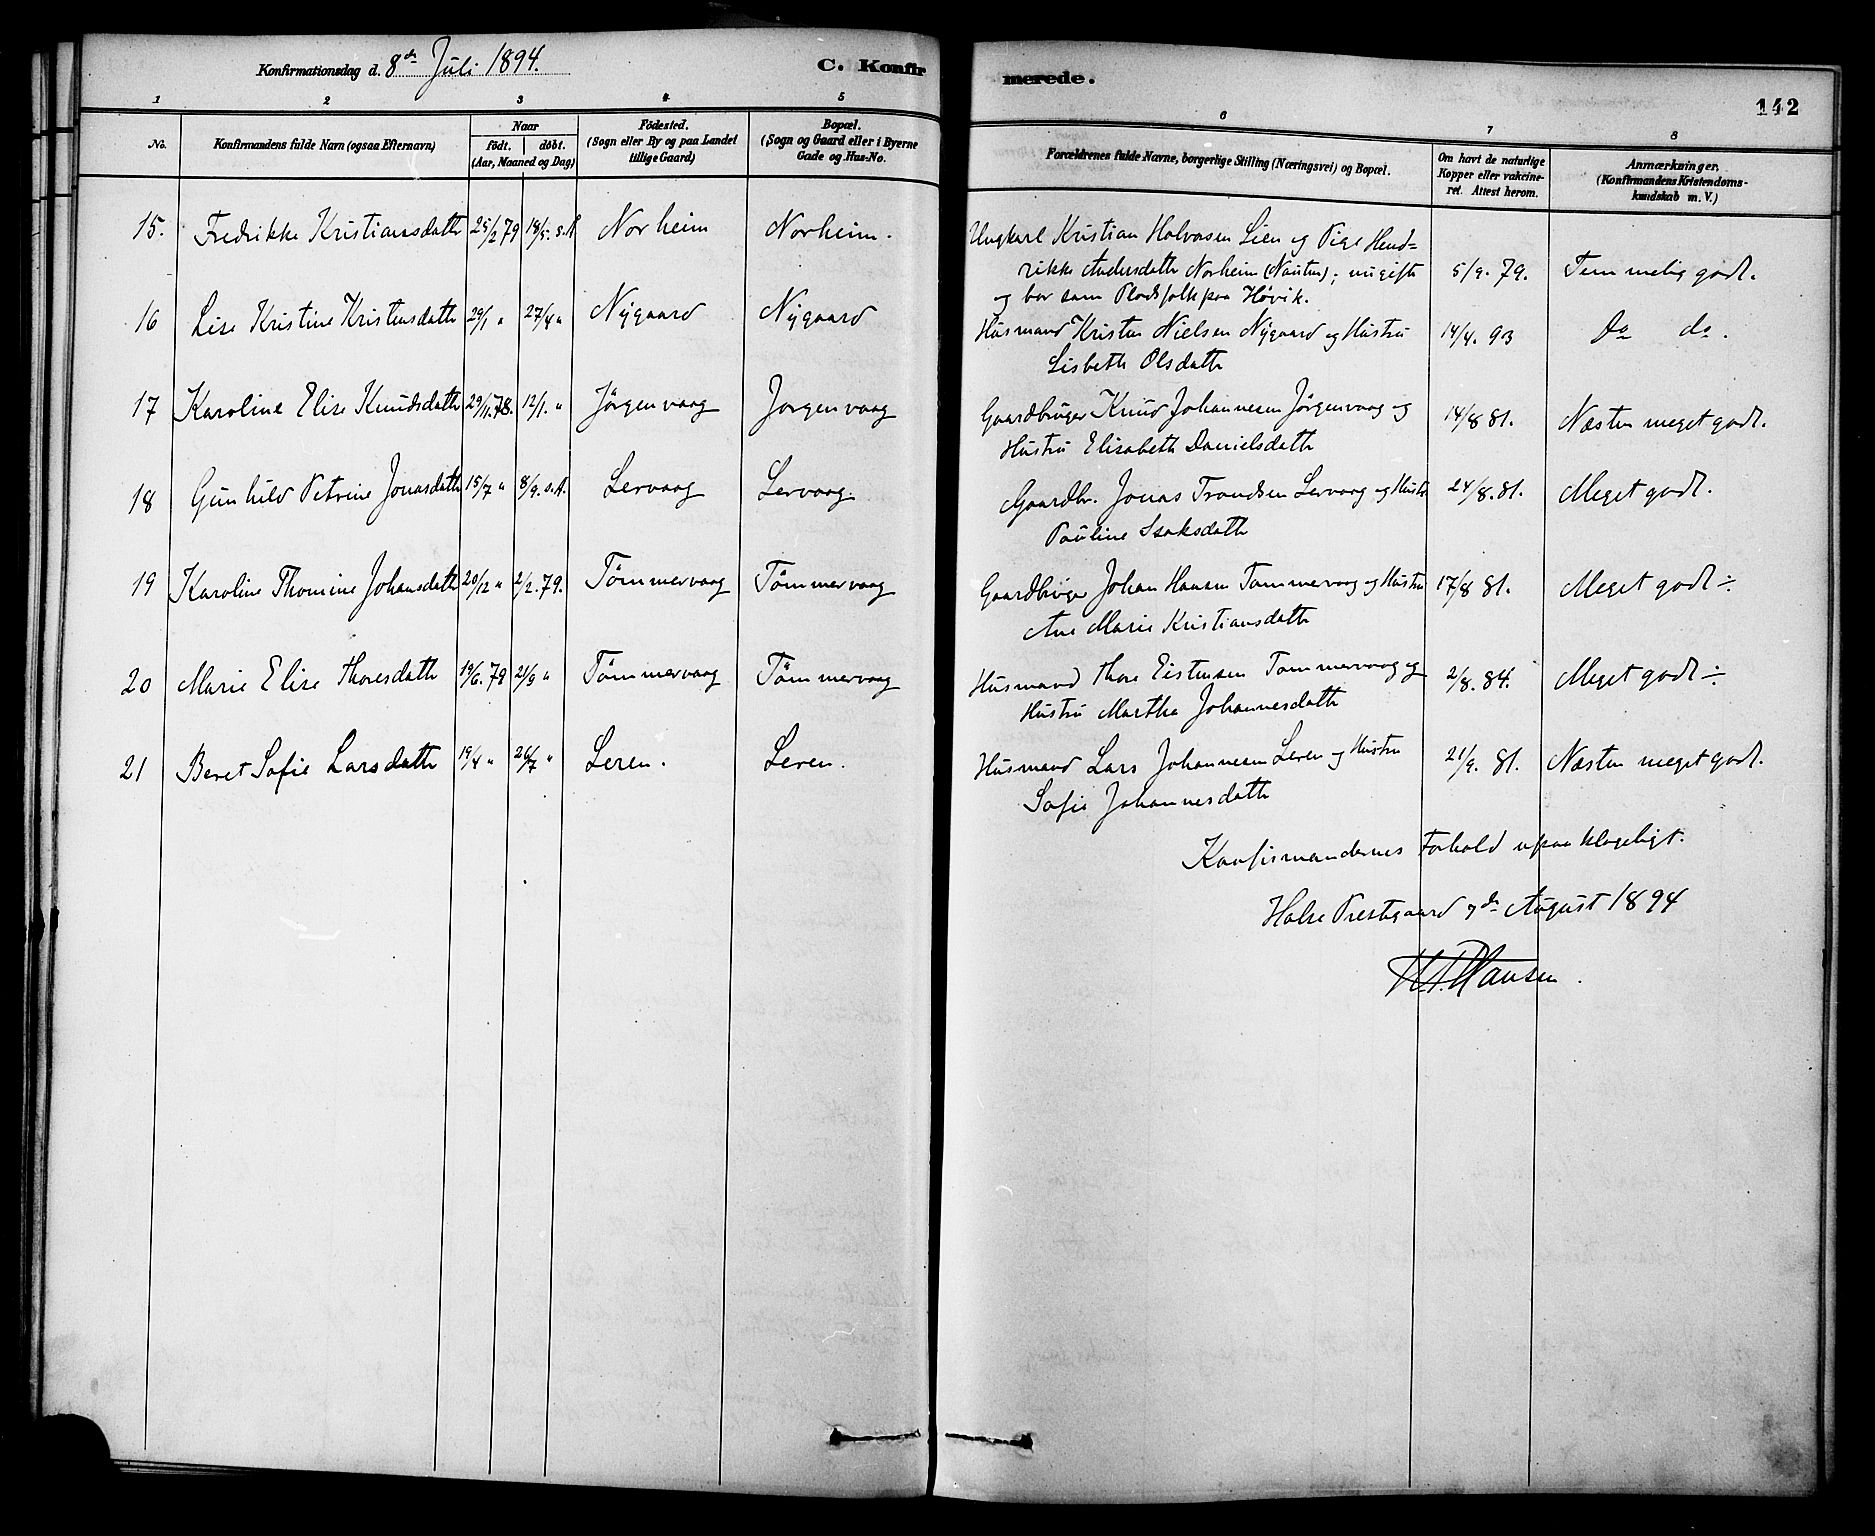 Konfirmationsdag d. 8de Juli 1894. C. Konfirmerede.
142
1 2 3 4 5 6 7 8
No. Konfirmandens fulde Navn (ogsaa Efternavn) Naar født. døbt. (Aar, Maaned og Dag) Fødested. (Sogn eller By og paa Landet tillige Gaard) Bopæl. (Sogn og Gaard eller i Byerne Gade og Hus-No. Forældrenes fulde Navne, borgerlige Stilling (Næringsvei) og Bopæl. Om havt de naturlige Kopper eller vakcineret. Attest herom. Anmærkninger. (Konfirmandens Kristendomskundskab m. V.)
15. Fredrikke Kristiansdatte 25/2 79 18/5. s.A. Norheim Norheim. Ungkarl Kristian Halvorsen Lien og Pige Hend=
rikke Andersdatte Norheim (Nausten); nugifte 5/9. 79. Temmelig godt.
og bor som Pladsfolk paa Høvik.
16 Lise Kristine Kristensdatte 29/1 " 27/4 " Nygaard Nygaard Husmand Kristen Nielsen Nygaard og Hustru 14/4. 93 Do do.
Lisbeth Olsdatte
17 Karoline Elise Knudsdatte 29/11.78. 12/1. " Jörgenvaag Jorgenvaag Gaardbruger Knud Johannesen Jörgenvaag og 14/8 81. Næsten meget godt.
Hustru Elisabeth Danielsdatte
18 Gunhild Petrine Jonasdatte 15/7 " 8/9. s.A. Lervaag Lervaag. Gaardbr. Jonas Trondsen Lervaag og Hustr 24/8. 81. Meget godt.
Pauline Isaksdatte
19 Karoline Thomine Johansdatte 20/12 " 2/2. 79. Tömmervaag Tömmervaag Gaardbruger Johan Hansen Tømmervaag og Hustru 17/8 81. Meget godt ÷
Ane Marie Kristiansdatte
20 Marie Elise Thoresdatte 19/6. 78 21/9 " Tömmervaag Tömmervaag Husmand Thore Eistensen Tømmervaag og 2/8. 84. Meget godt ÷
Hustru Martha Johannesdatte
21 Beret Sofie Larsdatte 19/4 " 26/7 " Leren. Leren. Husmand Lars Johannesen Leren og Hustru 21/9. 81. Næsten meget godt.
Sofie Johannesdatte
Konfirmandernes Forhold upaaklageligt.
Halse Prestegaard 7de August 1894
Hansen.